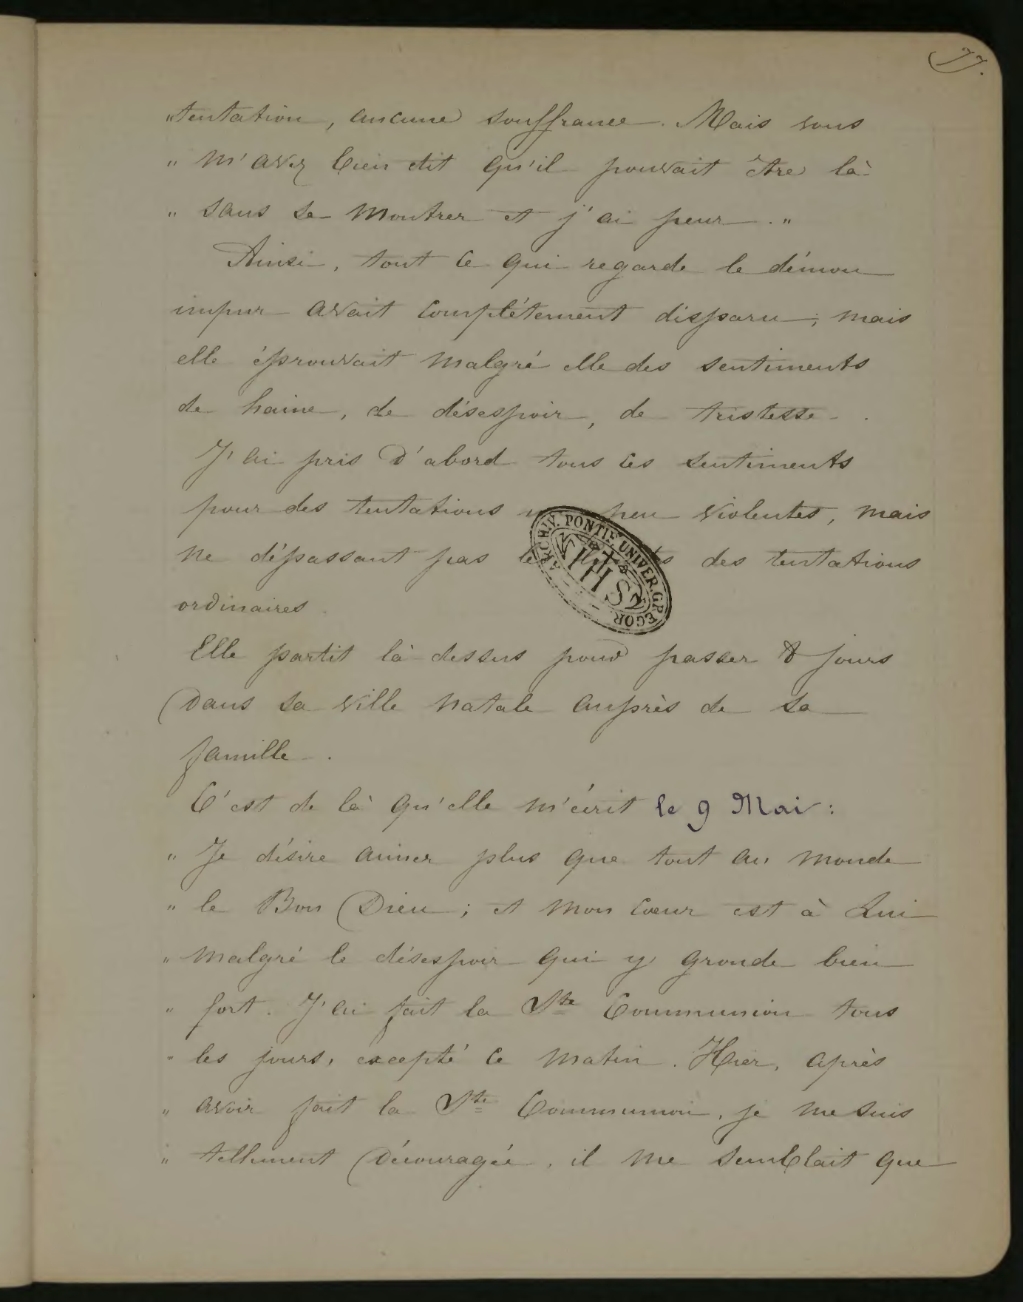 77.
„ tentation, aucune souffrance. Mais vous
„ m'avez bien dit qu'il pouvait être là
„ sans se montrer et j'ai peur. „
Ainsi, tout ce qui regarde le démon
impur avait complétement disparu; mais
elle éprouvait malgré elle des sentiments
de haine, de désespoir, de tristesse.
J'ai pris d'abord tous ces sentiments
pour des tentations un peu violentes, mais
ne dépassant pas des tentations
ordinaires.
ARCHIV. PONTIF. UNIVER. GREGOR
IHS
Elle partit là dessus pour passer 8 jours
dans sa ville natale auprès de sa
famille.
C'est de là qu'elle m'écrit le 9 Mai:
„ Je désire aimer plus que tout au monde
„ le Bon Dieu; et mon cœur est à Lui
„ malgré le désespoir qui y gronde bien
„ fort. J'ai fait la Ste Communion tous
„ les jours, excepté ce matin. Hier, après
„ avoir fait la Ste Communion, je me suis
„ tellement découragée, il me semblait que